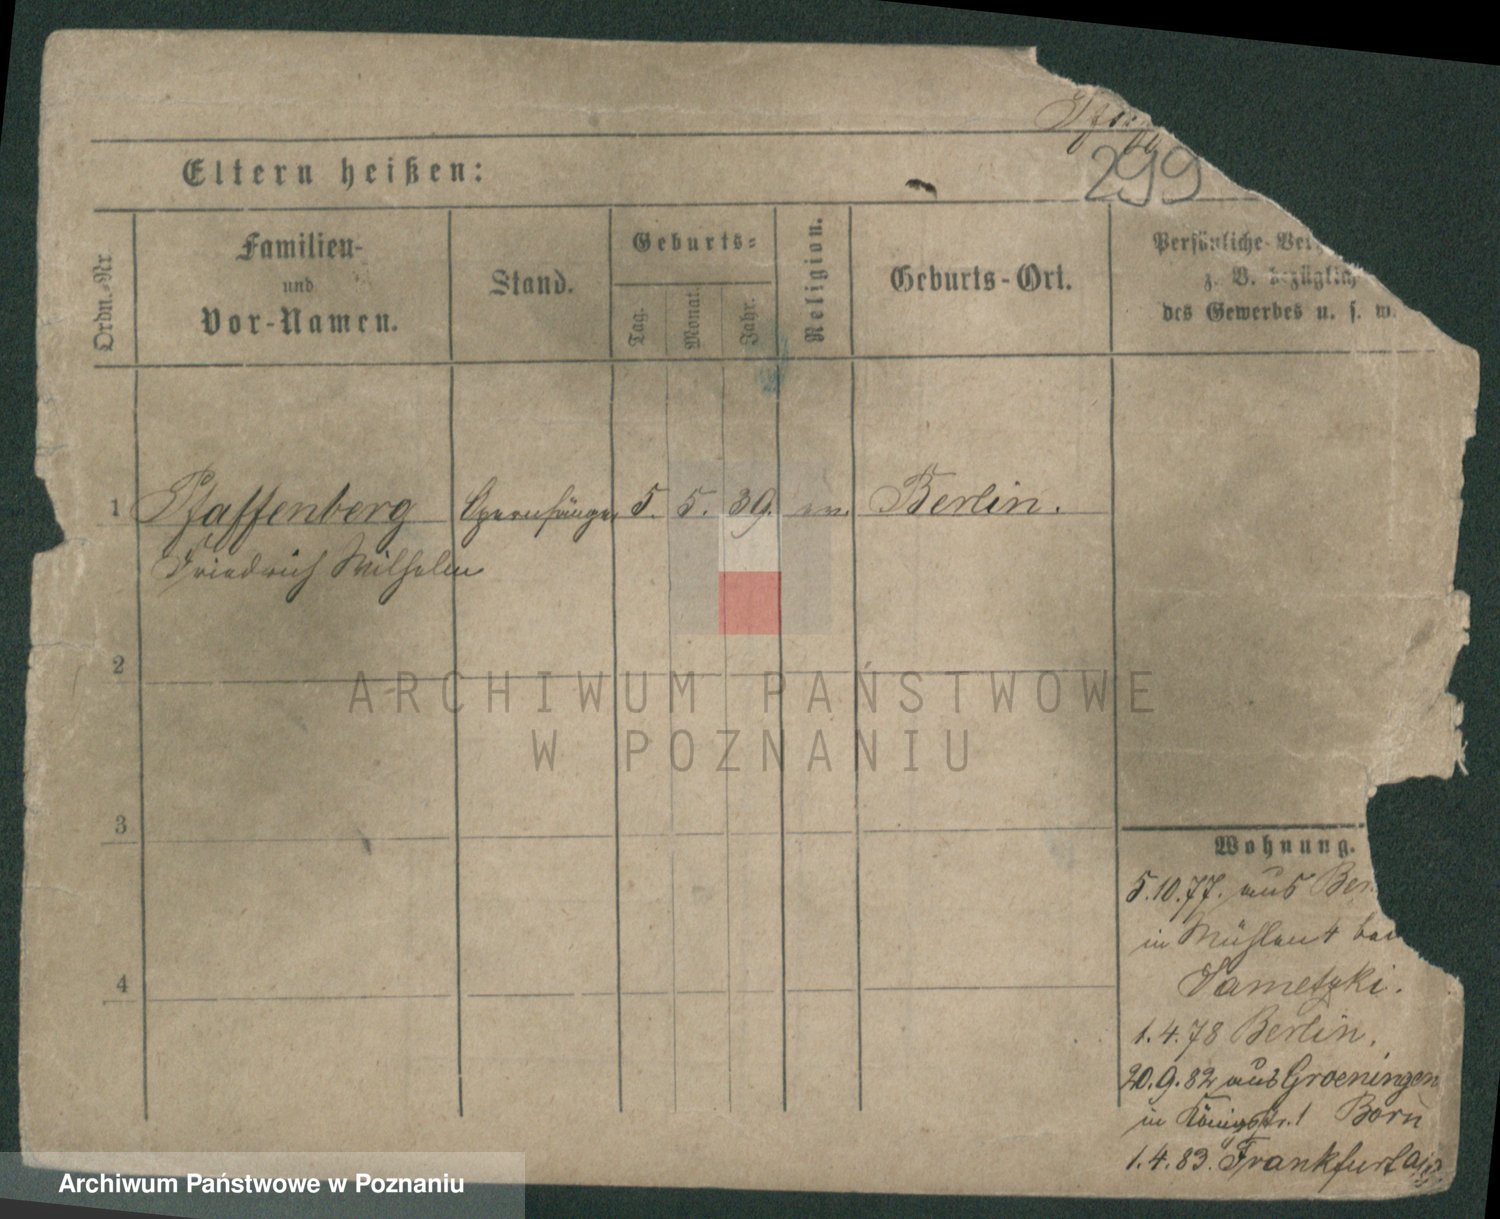 299
Eltern heißen:
Ordn.-Nr.
Familien-
und
Vor-Namen.
Stand.
Geburts-
Tag.
Monat.
Jahr.
Religion.
Geburts-Ort.
Persönliche
z. B. bezüglich
des Gewerbes u. s. w.
1 Pfaffenberg Opernsänger 5. 5. 39. ev. Berlin.
Friedrich Wilhelm
2
ARCHIWUM PAŃSTWOWE
W POZNANIU
3
Wohnung.
5.10.77. aus
in Mühlen 4
4
1.4.78 Berlin.
20.9.82 aus Groeningen
in Königsstr. 1 Born
1.4.83. Frankfurt a/O
Archiwum Państwowe w Poznaniu